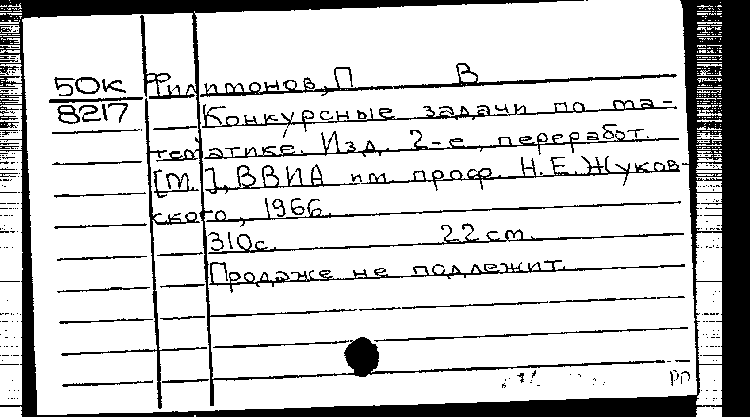 50К Филимонов, П В
8217 Конкурсные задачи по ма-
тематике. Изд. 2-е, переработ.
[М.], ВВИА им. проф. Н.Е.Жуков-
ского, 1966.
310с. 22 см.
Продаже не подлежит.
РП